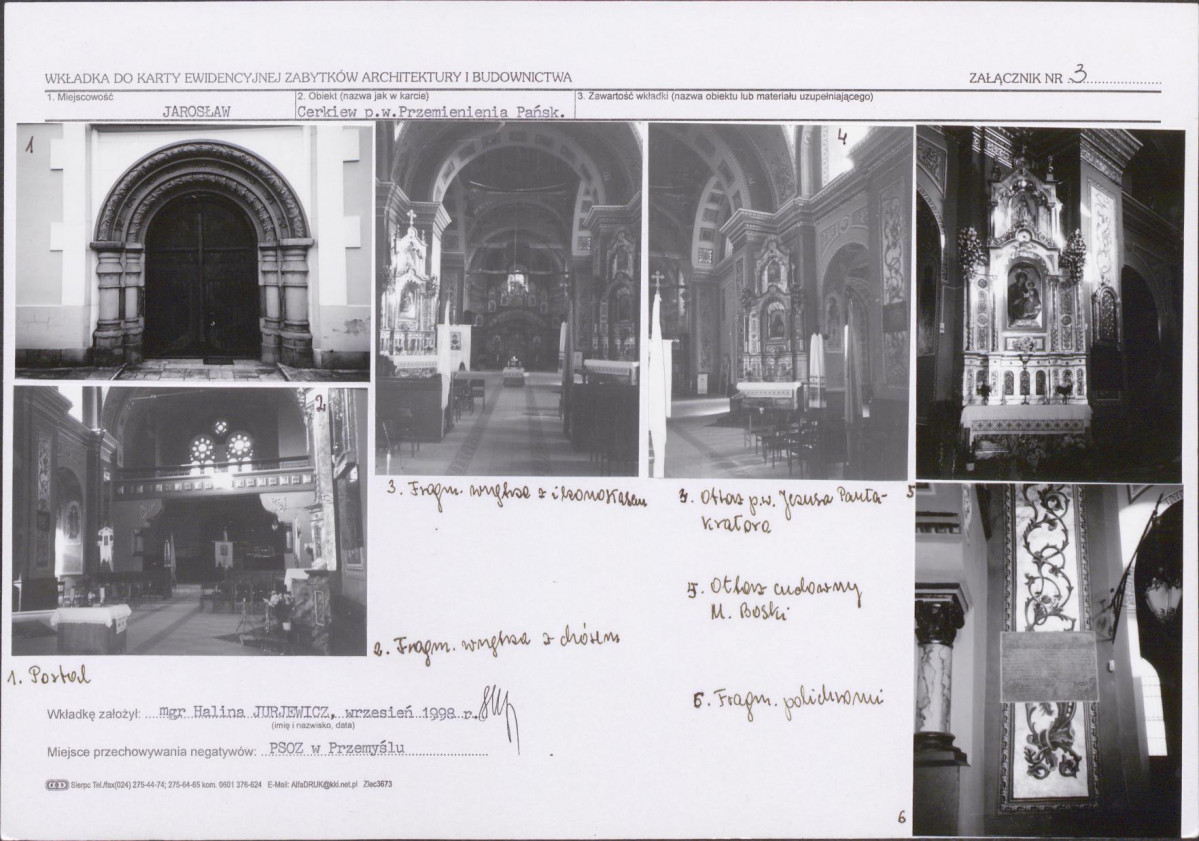 WKŁADKA DO KARTY EWIDENCYJNEJ ZABYTKÓW ARCHITEKTURY I BUDOWNICTWA
ZAŁĄCZNIK NR 3
1. Miejscowość
JAROSŁAW
2. Obiekt (nazwa jak w karcie)
Cerkiew p.w.Przemienienia Pańsk.
3. Zawartość wkładki (nazwa obiektu lub materiału uzupełniającego)
1
4
2
3. Fragm. wnętrza z ikonostasem
4. Ołtarz p.w. Jezusa Panta-
kratora
5
5. Ołtarz cudowny
M. Boski
2. Fragm. wnętrza z chórem
1. Portal
6. Fragm. polichromii
Wkładkę założył: mgr Halina JURJEWICZ, wrzesień 1998 r.
(imię i nazwisko, data)
Miejsce przechowywania negatywów: PSOZ w Przemyślu
Sierpc Tel./fax(024) 275-44-74; 275-64-65 kom. 0601 376-624 E-Mail: AlfaDRUK@kki.net.pl Zlec3673
6